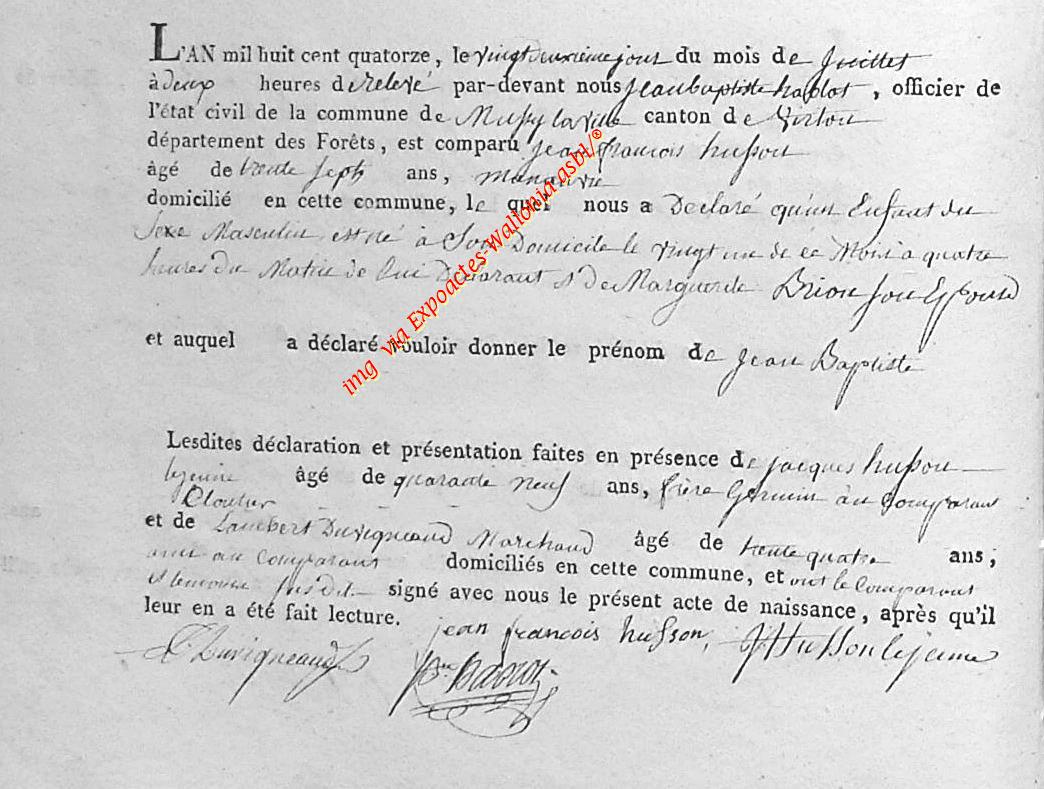 L'AN mil huit cent quatorze, le vingt deuxieme jour du mois de Juillet
à deux heures de relevé par-devant nous jean baptiste , officier de
l'état civil de la commune de Mussy la ville canton de Virton
département des Forêts, est comparu jean françois husson
âgé de trente sept ans, manœuvre
domicilié en cette commune, le quel nous a Declaré qu'un Enfant du
Sexe Masculin est né à Son Domicile le vingt un de ce Mois à quatre
heures du Matin de lui Declarant & de Marguerite Brion son Epouse
et auquel a déclaré vouloir donner le prénom de jean Baptiste
Lesdites déclaration et présentation faites en présence de jacques husson
lejeune âgé de quarante neuf ans, frère Germain au comparant
Cloutier
et de Lambert Duvigneaud Marchand âgé de trente quatre ans,
ami au comparant domiciliés en cette commune, et ont le comparant
et temoins susdit signé avec nous le présent acte de naissance, après qu'il
leur en a été fait lecture.
jean francois husson, J Husson lejeune
L Duvigneaud
img via Expoactes-Wallonia asbl/®